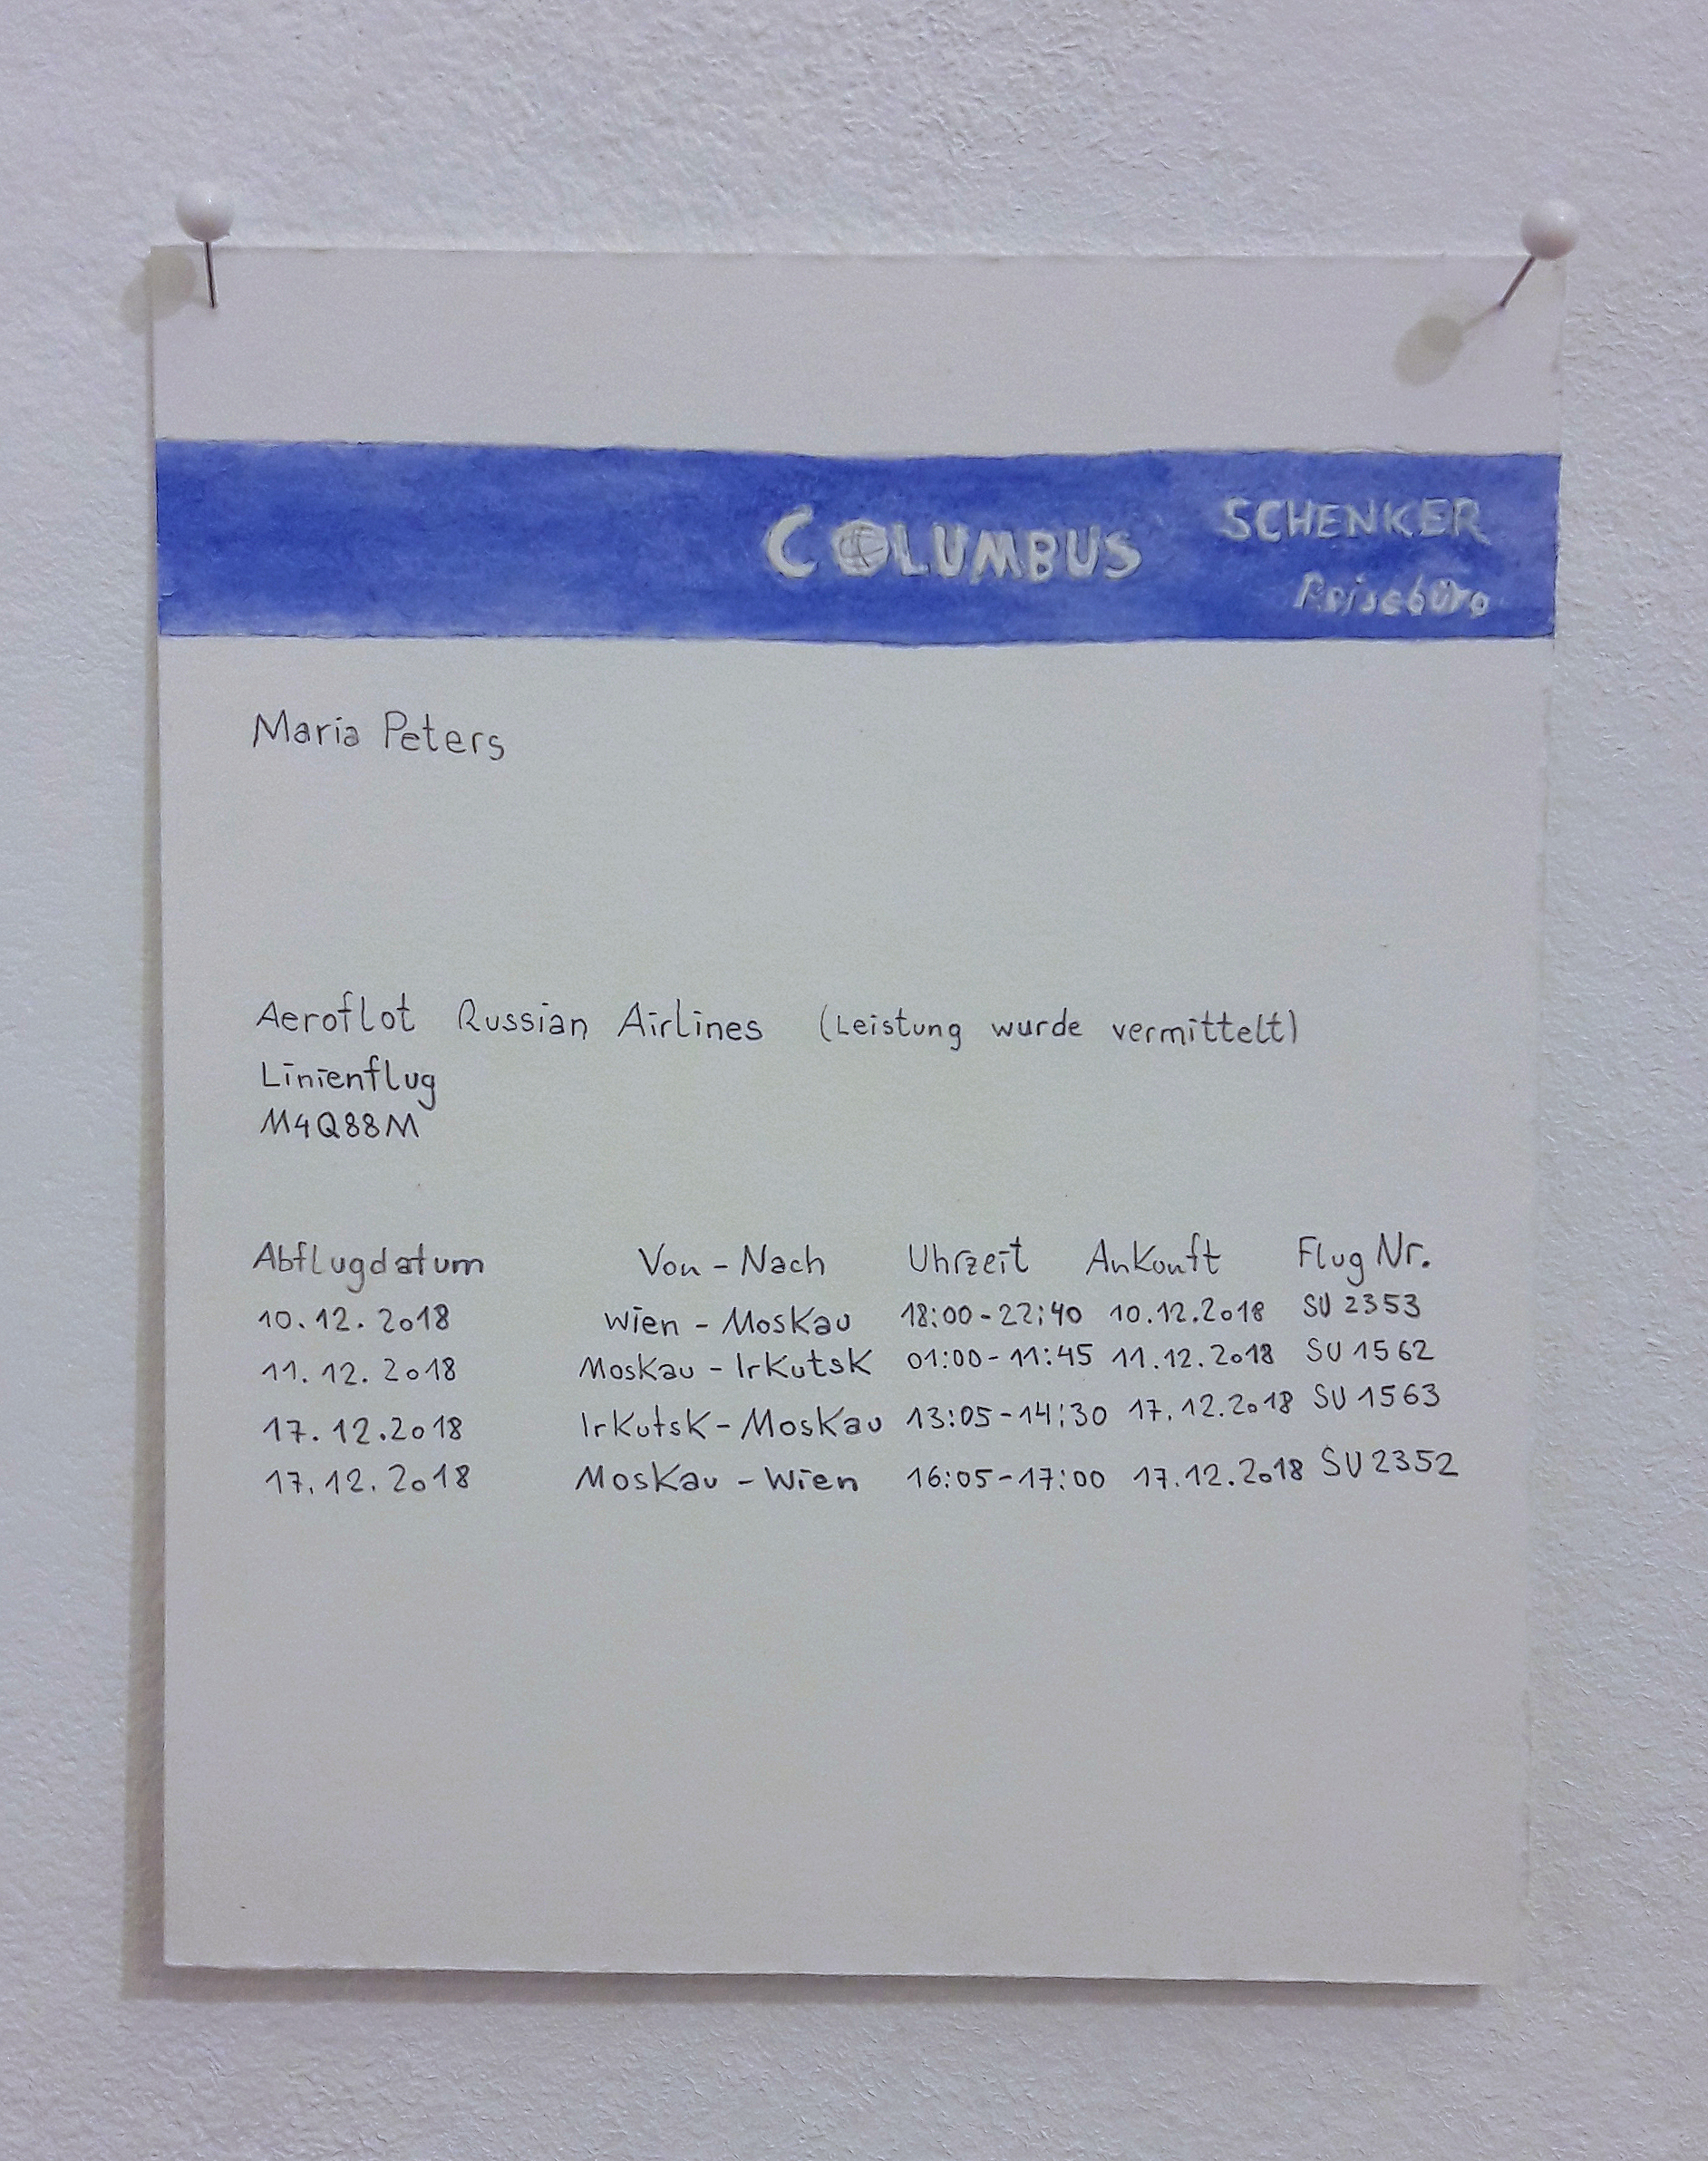 COLUMBUS SCHENKER
Reisebüro
Maria Peters
Aeroflot Russian Airlines (Leistung wurde vermittelt)
Linienflug
M4Q88M
Abflugdatum Von - Nach Uhrzeit Ankunft Flug Nr.
10.12.2018 Wien - Moskau 18:00-22:40 10.12.2018 SU 2353
11.12.2018 Moskau - Irkutsk 01:00-11:45 11.12.2018 SU 1562
17.12.2018 Irkutsk - Moskau 13:05-14:30 17.12.2018 SU 1563
17.12.2018 Moskau - Wien 16:05-17:00 17.12.2018 SU 2352